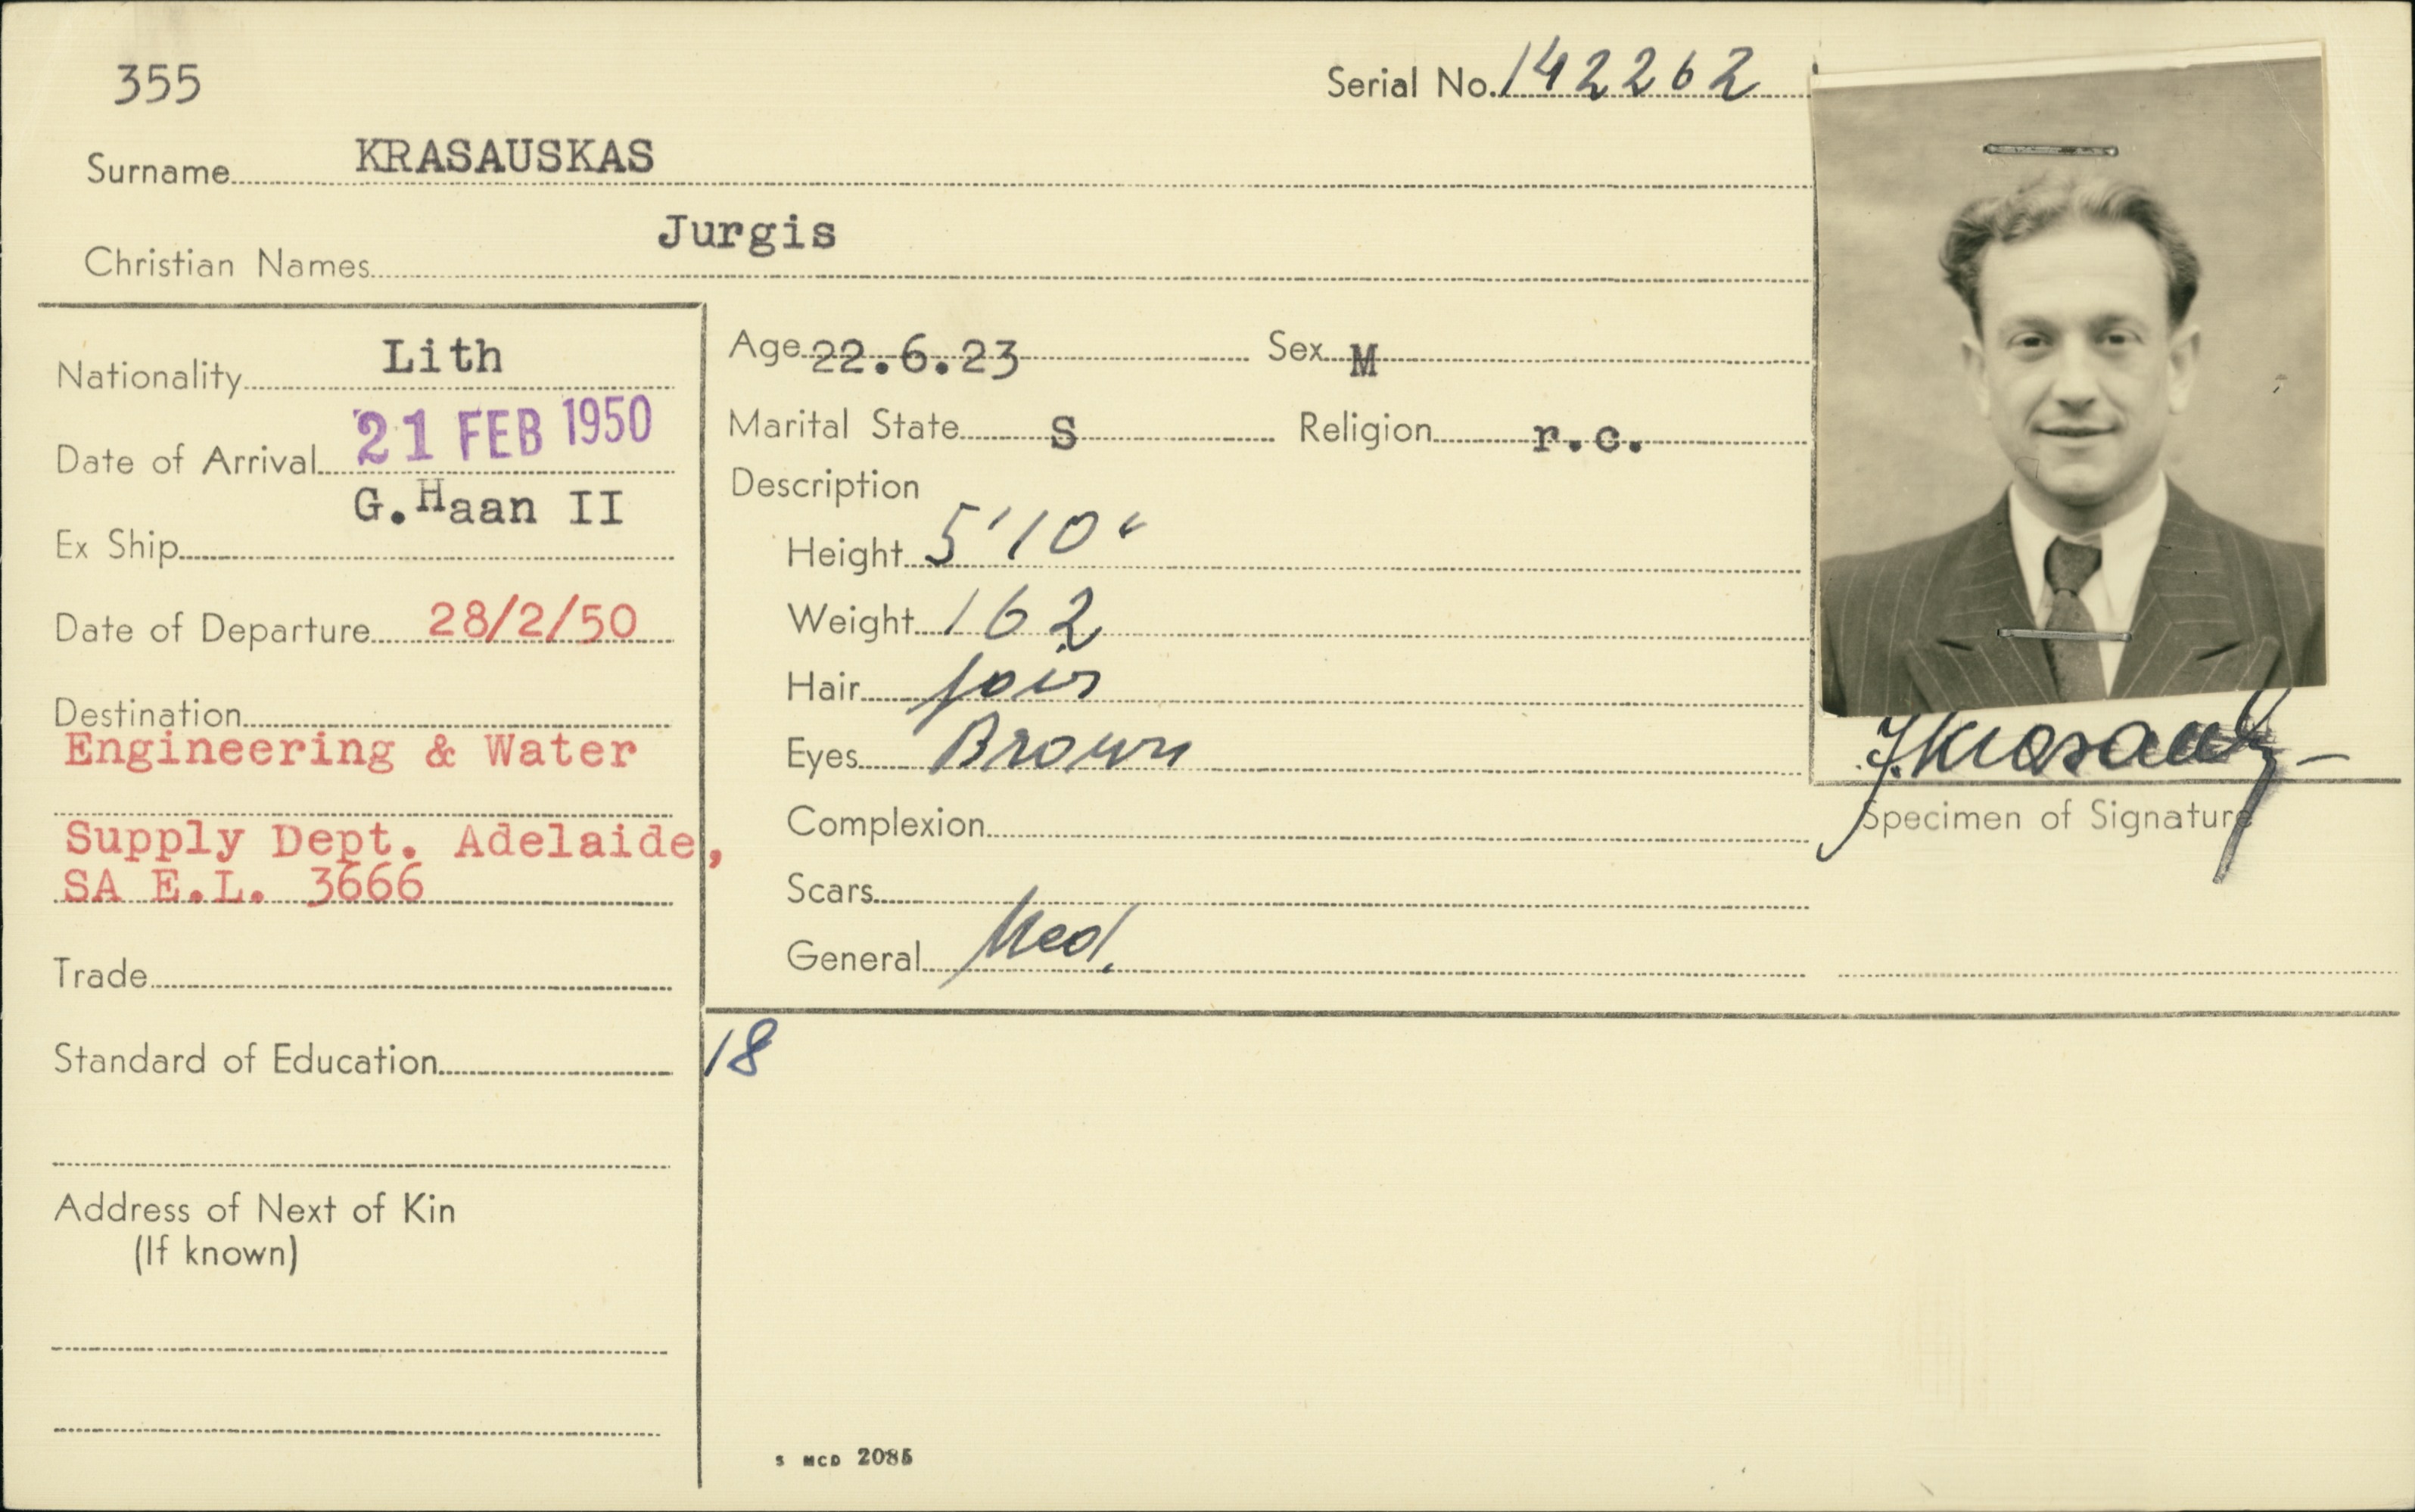 355
Serial No. 142262
Surname KRASAUSKAS
Christian Names Jurgis
Nationality Lith
Date of Arrival 21 FEB 1950
Ex Ship G.Haan II
Date of Departure 28/2/50
Destination
Engineering & Water
Supply Dept. Adelaide,
SA E.L. 3666
Trade
Standard of Education
Address of Next of Kin
(If known)
Age 22.6.23 Sex M
Marital State S Religion r.c.
Description
Height 5'10"
Weight 162
Hair fair
Eyes Brown
Complexion
Scars
General Med.
18
Specimen of Signature
S MCD 2085